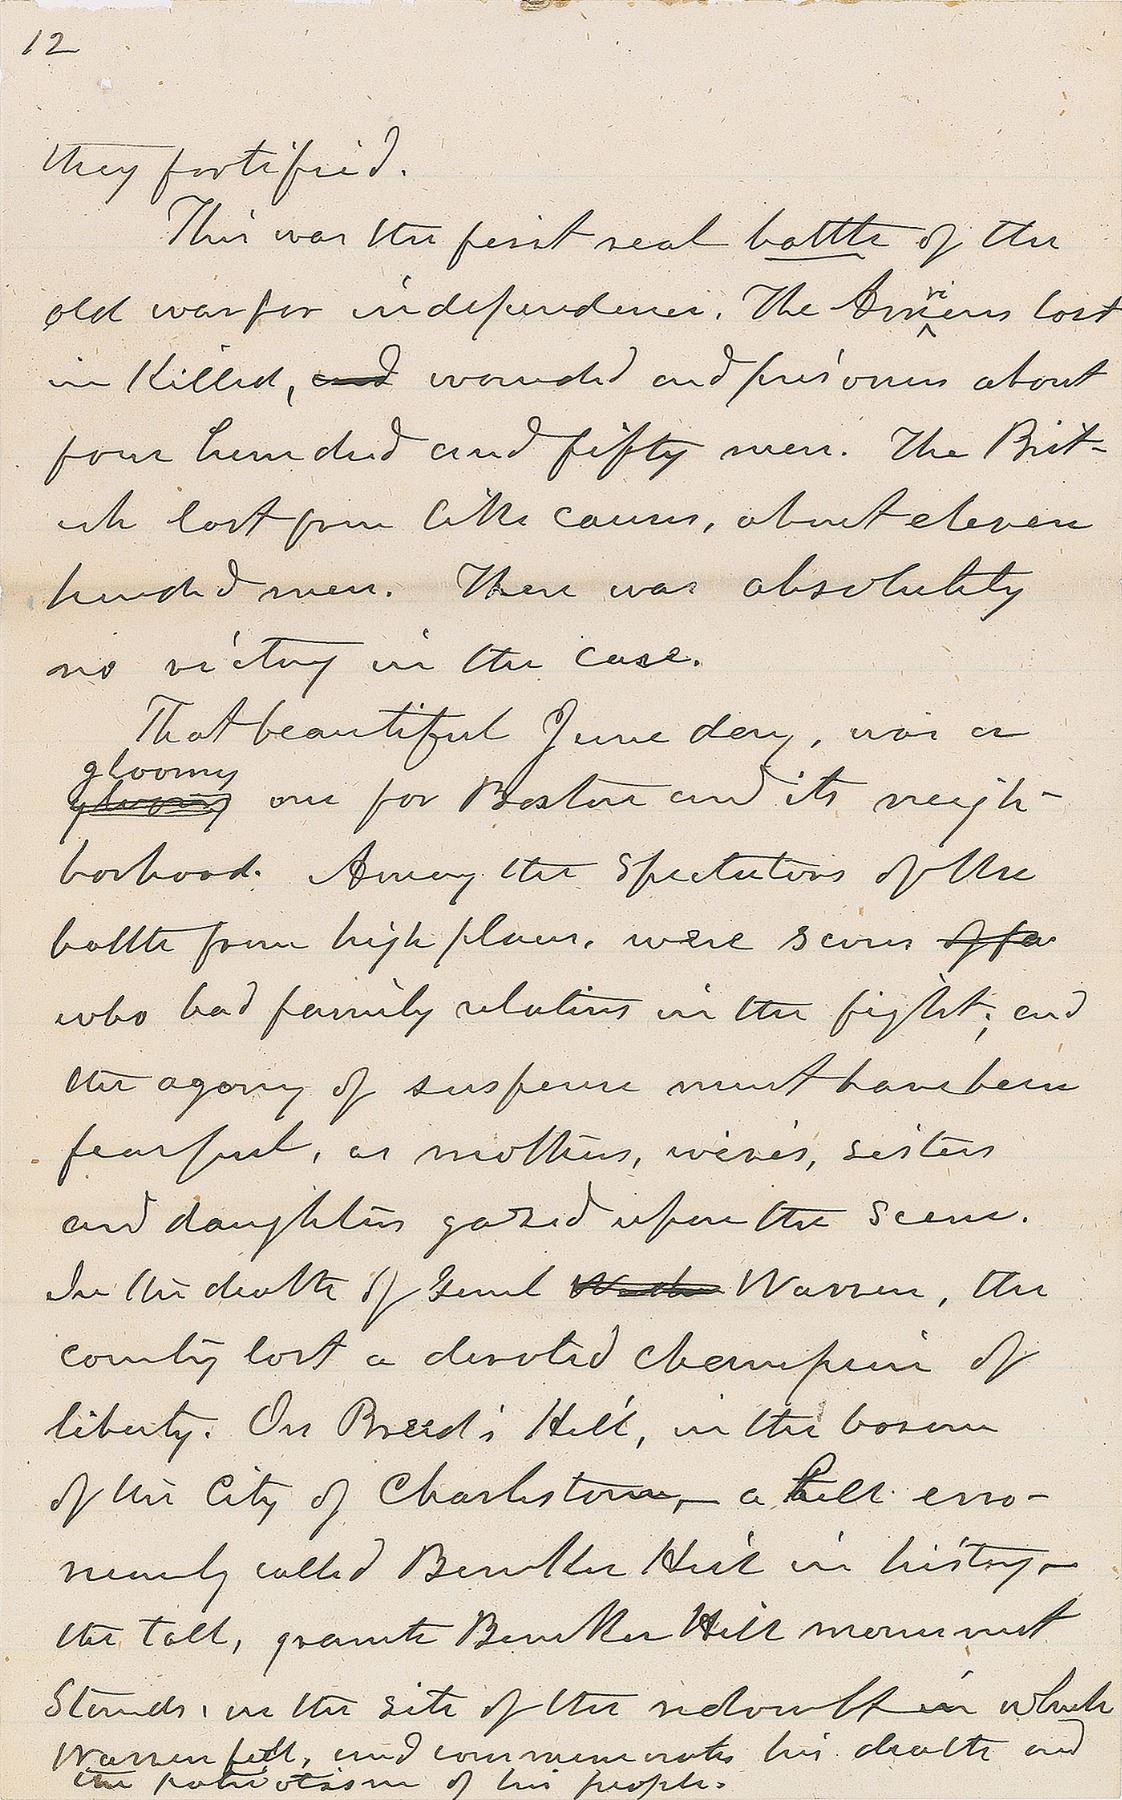 12
they fortified.
This was the first real battle of the
old war for independence. The Americans lost
in killed, and wounded and prisoners about
four hundred and fifty men. The Brit-
ish lost from like causes, about eleven
hundred men. There was absolutely
no victory in the case.
That beautiful June day, was a
gloomy
gloomy one for Boston and its neigh-
borhood. Among the spectators of the
battle from high places, were scores of fa
who had family relatives in the fight; and
the agony of suspense must have been
fearful, as mothers, wives, sisters
and daughters gazed upon the scene.
In the death of Genl Warren, the
country lost a devoted champion of
liberty. On Breed's Hill, in the bosom
of the City of Charlestown, – a hill erro-
neously called Bunker Hill in history –
the tall, granite Bunker Hill monument
stands, on the site of the redoubt in which
Warren fell, and commemorates his death and
the patriotism of his people.